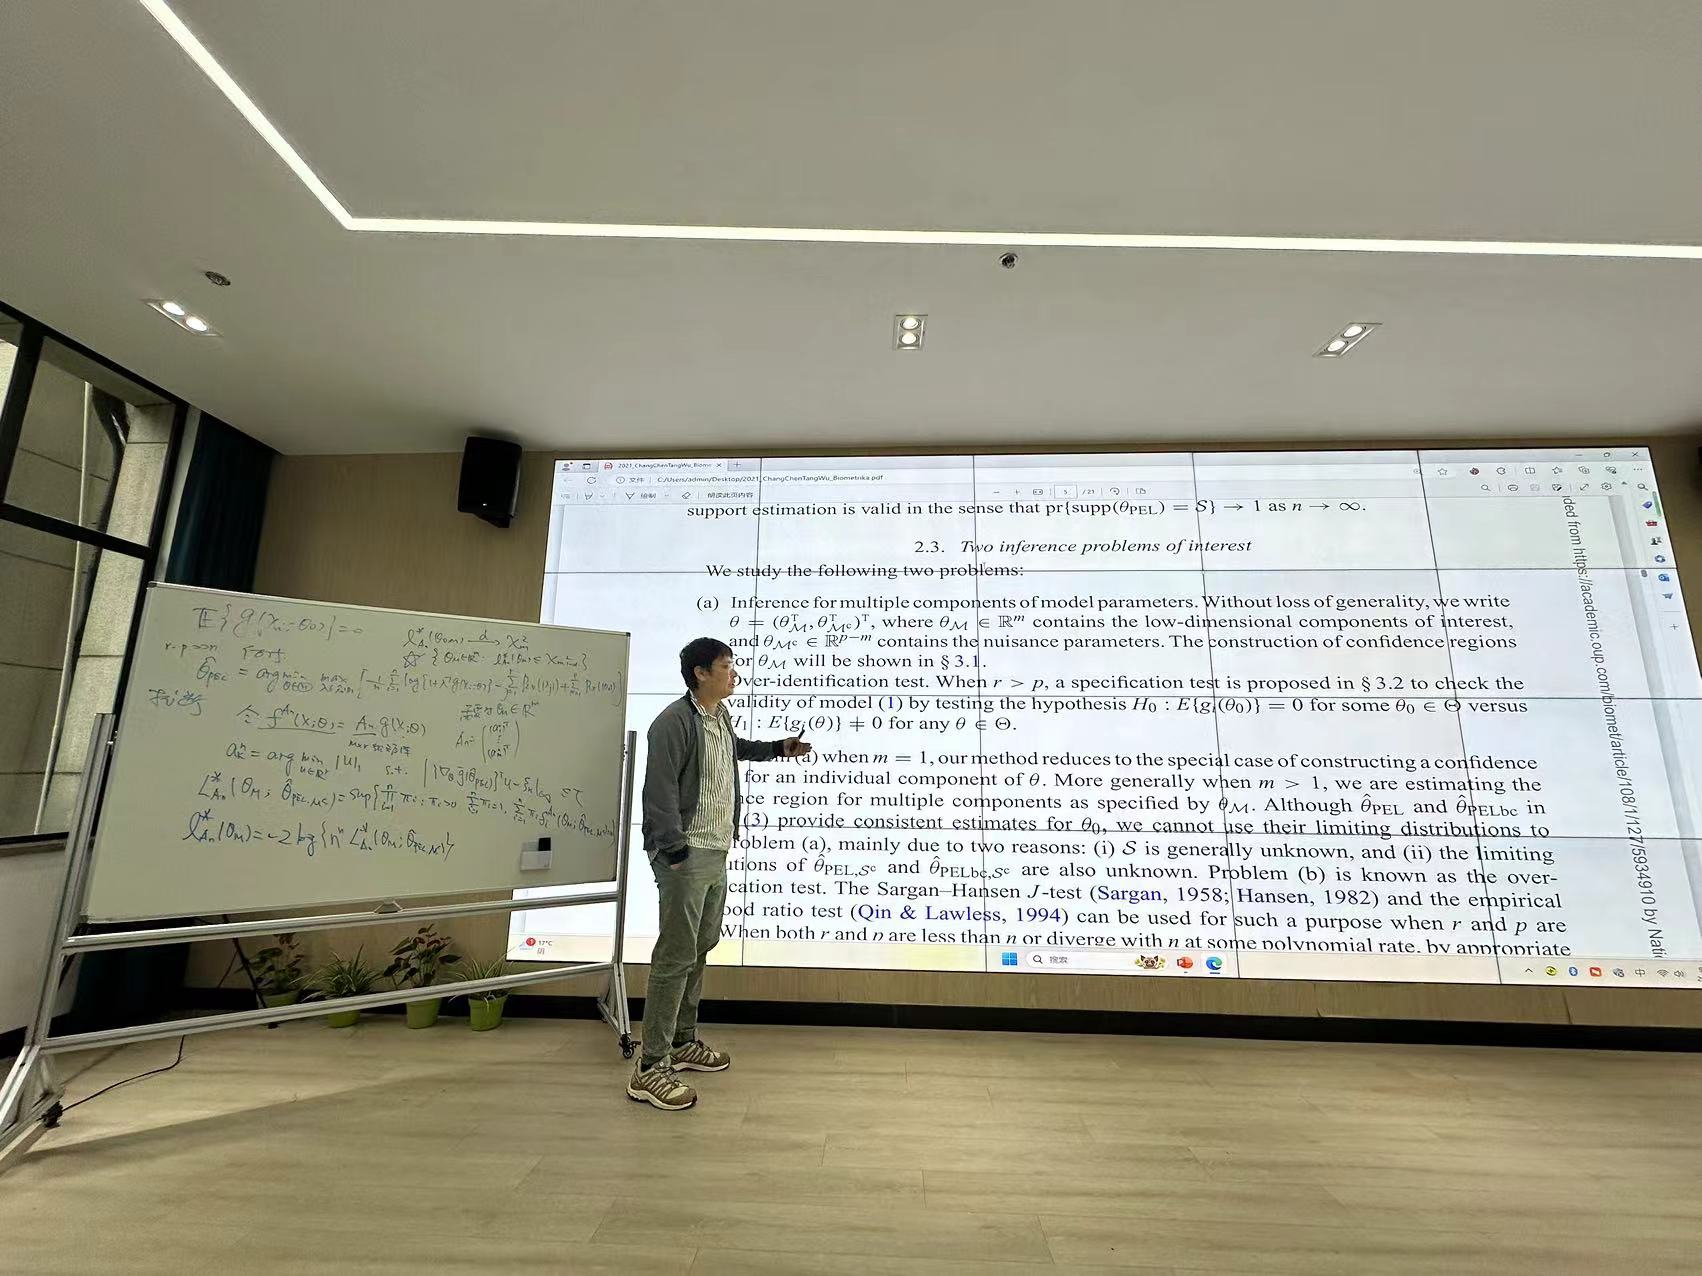 𝔼{g(Xi;θ0)}=0
r·p>>n
l*An(θ0,M) →d χ²m
θ̂PEL = arg min max
推断
令 f^An(X;θ) = An g(X;θ)
An =
s.t.
L*An(θM; θ̂PEL,Mc) = sup{
l*An(θM) = -2 log{n^n L*An(θM; θ̂PEL,Mc)}
2021_ChangChenTangWu_Biome
文件 C:/Users/admin/Desktop/2021_ChangChenTangWu_Biometrika.pdf
绘制 朗读此页内容 5 /21
support estimation is valid in the sense that pr{supp(θ̂PEL) = S} → 1 as n → ∞.
2.3. Two inference problems of interest
We study the following two problems:
(a) Inference for multiple components of model parameters. Without loss of generality, we write
θ = (θᵀM, θᵀMc)ᵀ, where θM ∈ ℝ^m contains the low-dimensional components of interest,
and θMc ∈ ℝ^(p−m) contains the nuisance parameters. The construction of confidence regions
or θM will be shown in § 3.1.
Over-identification test. When r > p, a specification test is proposed in § 3.2 to check the
validity of model (1) by testing the hypothesis H0 : E{gi(θ0)} = 0 for some θ0 ∈ Θ versus
H1 : E{gi(θ)} ≠ 0 for any θ ∈ Θ.
(a) when m = 1, our method reduces to the special case of constructing a confidence
for an individual component of θ. More generally when m > 1, we are estimating the
ce region for multiple components as specified by θM. Although θ̂PEL and θ̂PELbc in
(3) provide consistent estimates for θ0, we cannot use their limiting distributions to
roblem (a), mainly due to two reasons: (i) S is generally unknown, and (ii) the limiting
utions of θ̂PEL,Sc and θ̂PELbc,Sc are also unknown. Problem (b) is known as the over-
cation test. The Sargan–Hansen J-test (Sargan, 1958; Hansen, 1982) and the empirical
ood ratio test (Qin & Lawless, 1994) can be used for such a purpose when r and p are
When both r and p are less than n or diverge with n at some polynomial rate, by appropriate
ded from https://academic.oup.com/biomet/article/108/1/127/5934910 by Nati
17°C
阴
搜索
中